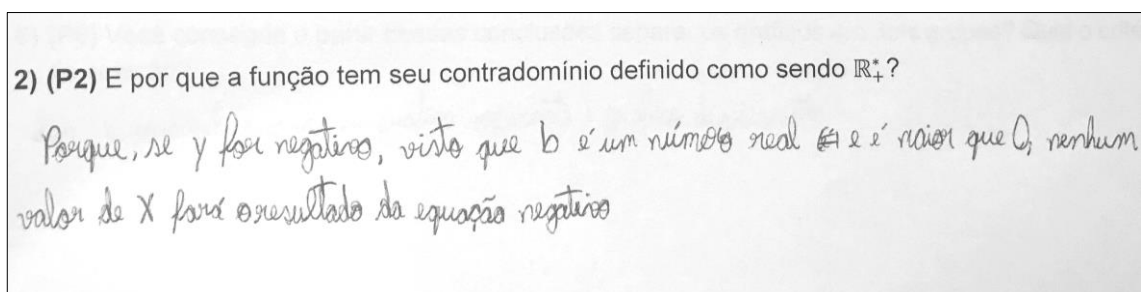 2) (P2) E por que a função tem seu contradomínio definido como sendo ℝ₊*?
Porque, se y for negativo, visto que b é um número real e é maior que 0, nenhum
valor de X fará o resultado da equação negativo